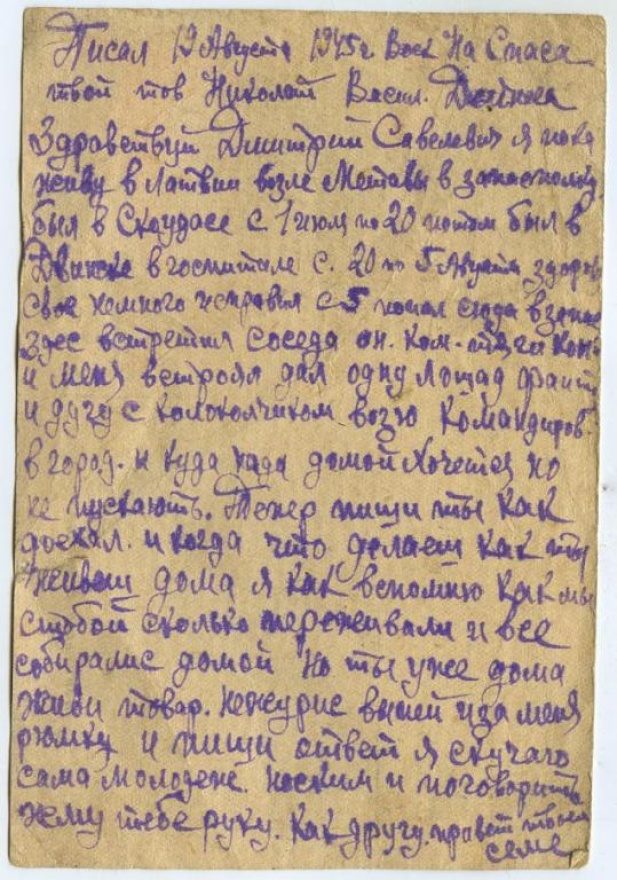 Писал 19 Августа 1945 г Вос На Спаса
твой тов Николай Васил.
Здравствуй Дмитрий Савелевич я пока
живу в Латвии возле Метавы в
был в Скоудасе с 1 июл по 20 потом был в
Двинске в госпитале с. 20 по 5 Августа
свое немного исправил с 5 попал сюда в
здес встретил соседа он. ком.
и меня встроял дал одну лошад
и дугу с колоколчиком возю командиров.
в город. и куда нада домой хочется но
не пускають. Тепер пиши ты как
доехал. и когда что делаеш как ты
живеш дома я как вспомню как мы
стобой сколько переживали и все
собиралис домой но ты уже дома
живи товар. нежурис выпей иза меня
рюмку и пиши ответ я скучаю
сама молодеж. поговорить
жму тебе руку. как другу. привет твоей
семе